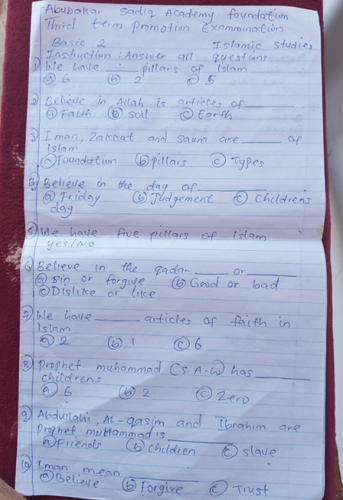 Abubakar Sadiq Academy foundation
Third term promotion Examination
Basic 2 Islamic studies
Instruction: Answer all questions
1) We have ___ pillars of Islam
(a) 6 (b) 2 (c) 5
2) Believe in Allah is articles of ___
(a) Faith (b) soil (c) Earth
3) Iman, Zakkat and Saum are ___ of
Islam
(a) foundation (b) pillars (c) Types
4) Believe in the day of ___
(a) Friday (b) Judgement (c) Childrens
day
5) We have five pillars of Islam
Yes/No
6) Believe in the qadar ___ or ___
(a) sin or forgive (b) Good or bad
(c) Dislike or like
7) We have ___ articles of faith in
Islam
(a) 2 (b) 1 (c) 6
8) Prophet muhammad (S.A.W) has ___
childrens
(a) 6 (b) 2 (c) Zero
9) Abdullahi, Al-qasim and Ibrahim are
Prophet muhammad is ___
(a) Friends (b) children (c) slave
10) Iman mean ___
(a) Believe (b) Forgive (c) Trust